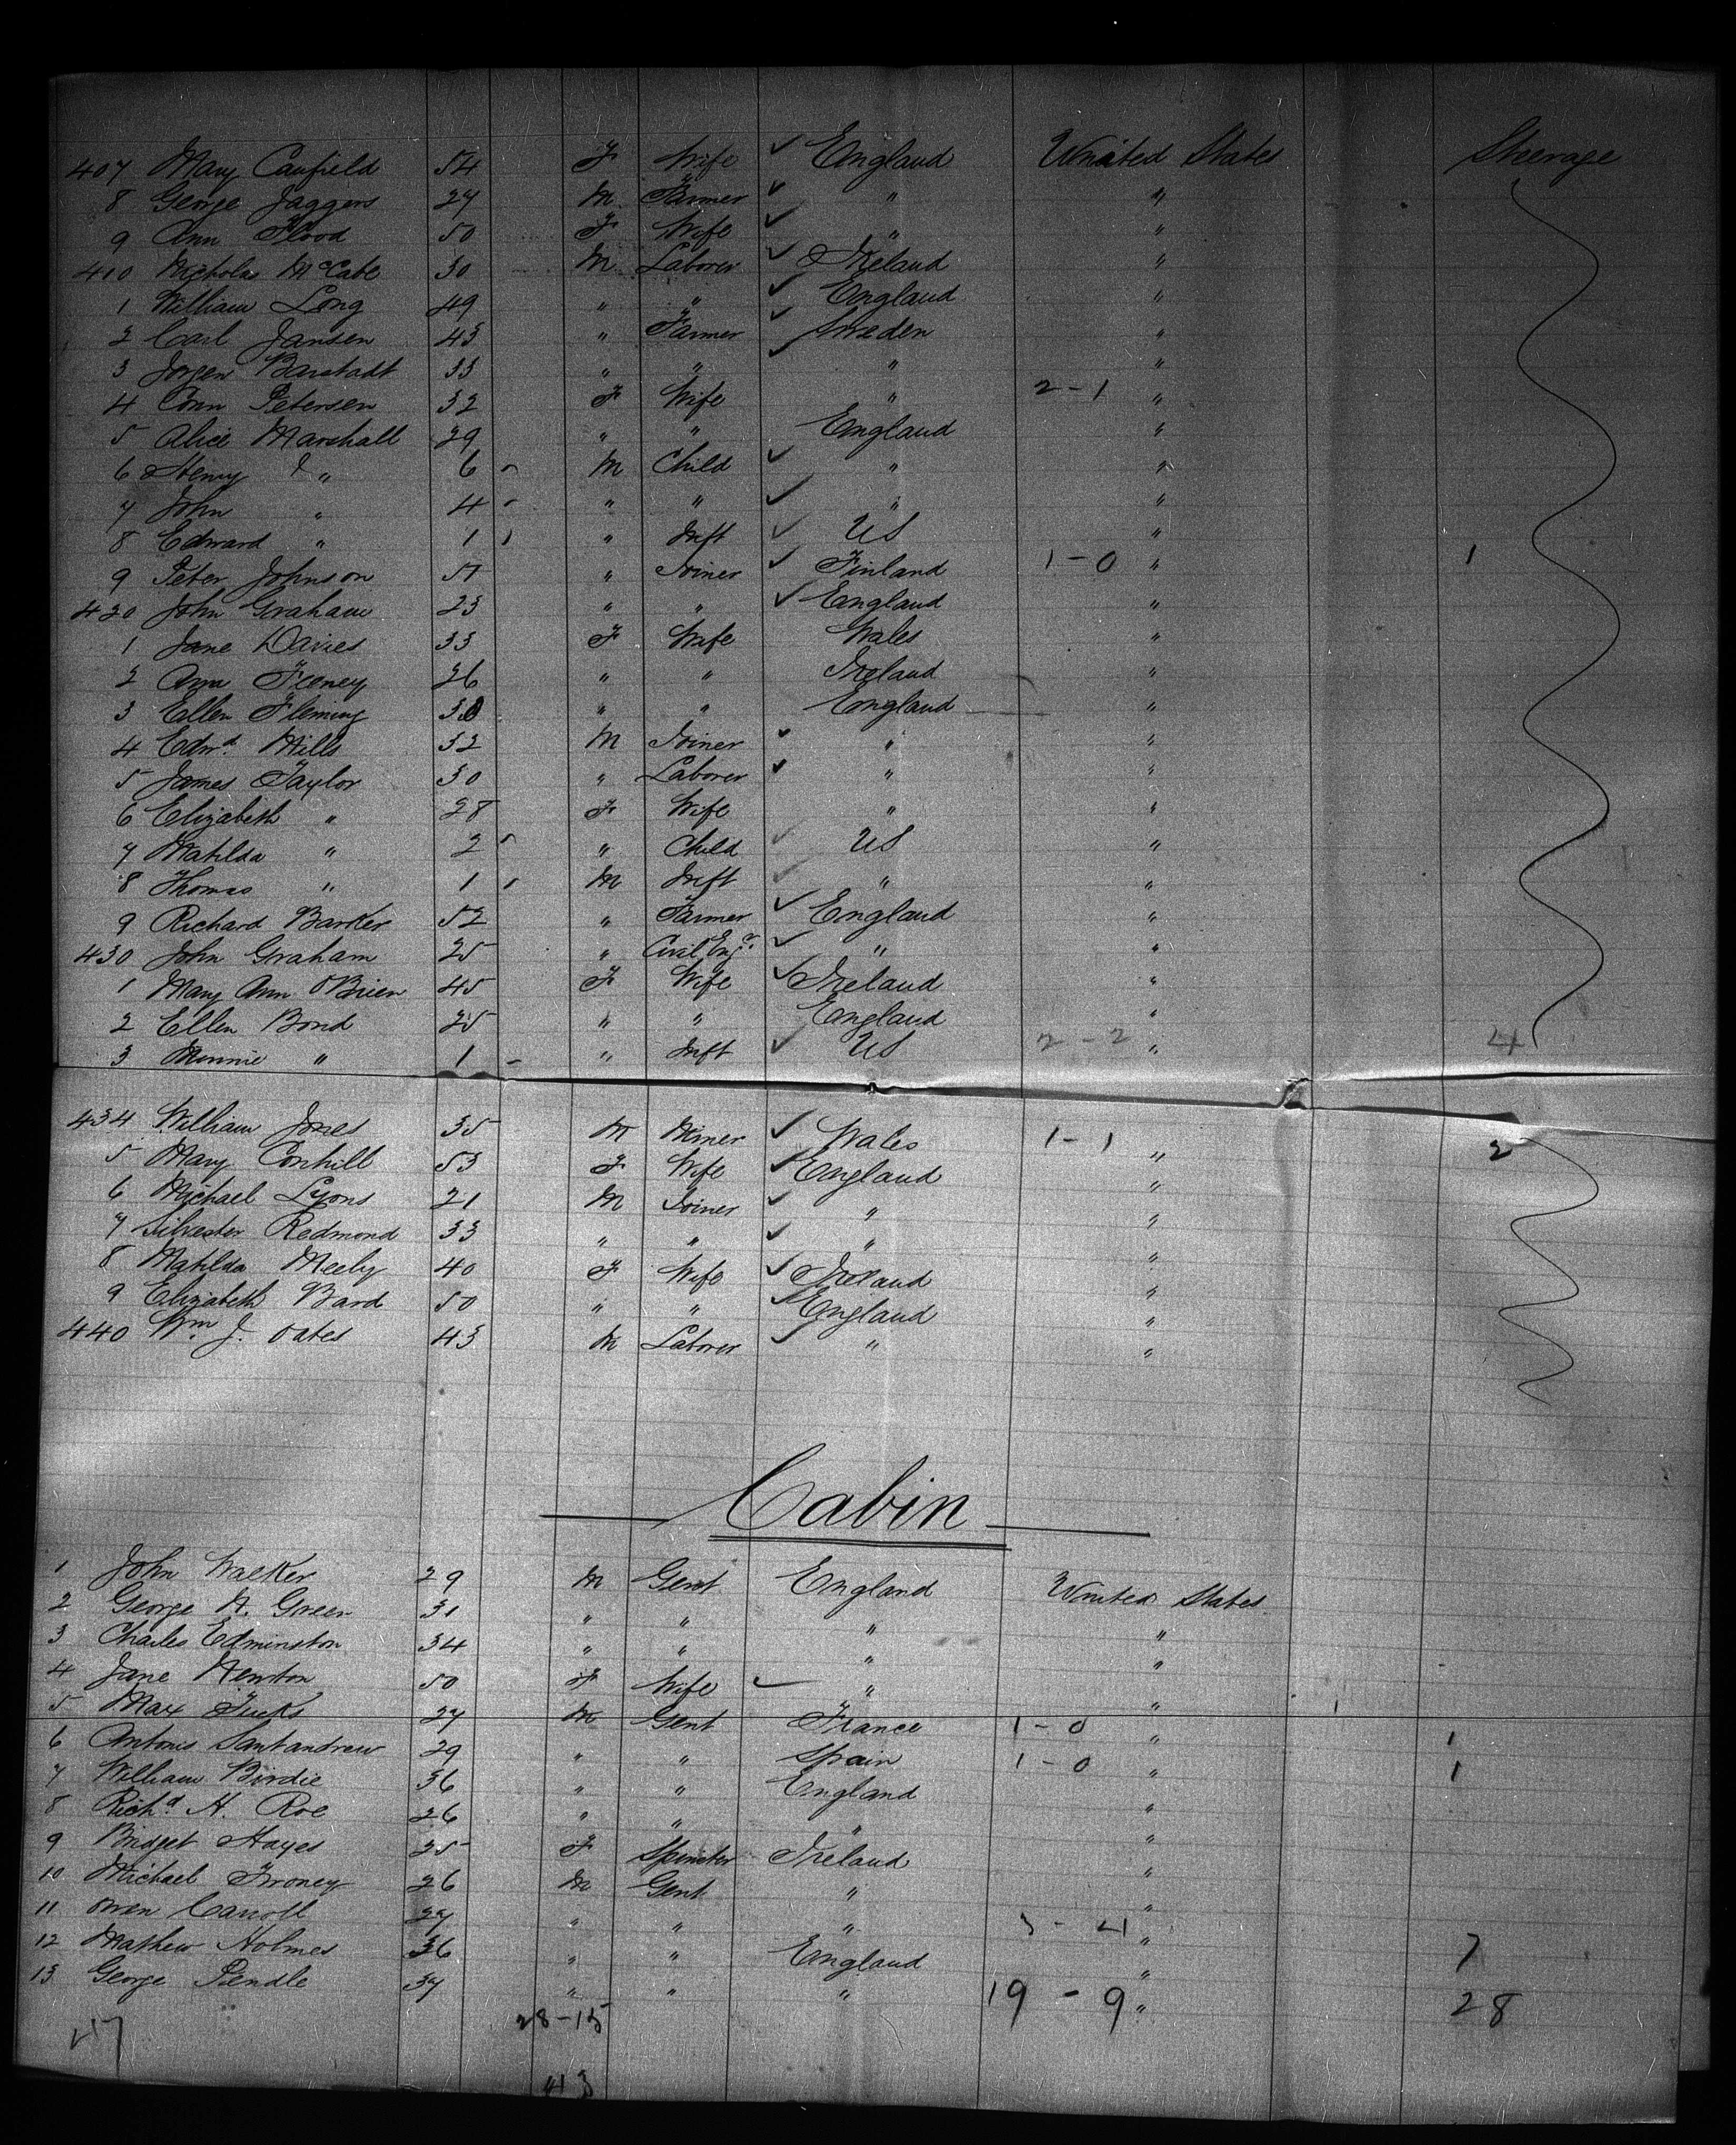 407 Mary Caufield 54 F Wife ✓ England United States Steerage
8 George Jaggers 27 M Farmer ✓ " "
9 Ann Flood 50 F Wife ✓ " "
410 Nicholas McCabe 30 M Laborer ✓ Ireland "
1 William Long 49 " " ✓ England "
2 Carl Jansen 43 " Farmer ✓ Sweden "
3 Jorgen Barstadt 33 " " ✓ " "
4 Ann Petersen 32 F Wife " 2-1 "
5 Alice Marshall 29 " " England "
6 Henry J " 6 M Child ✓ " "
7 John " 4 " " ✓ " "
8 Edward " 1 1 " Inft ✓ US "
9 Peter Johnson 51 " Joiner ✓ Finland 1-0 " 1
420 John Graham 23 " " ✓ England "
1 Jane Davies 33 F Wife Wales "
2 Ann Feeney 26 " " Ireland "
3 Ellen Fleming 30 " " England "
4 Edwd. Mills 32 M Joiner ✓ " "
5 James Taylor 30 " Laborer ✓ " "
6 Elizabeth " 28 F Wife " "
7 Matilda " 2 " Child ✓ US "
8 Thomas " 1 1 M Inft ✓ " "
9 Richard Barker 52 " Farmer ✓ England "
430 John Graham 25 " Civil Engr. ✓ " "
1 Mary Ann OBrien 45 F Wife ✓ Ireland "
2 Ellen Bond 25 " " England "
3 Minnie " 1 - " Inft ✓ US 2-2 " 4
434 William Jones 35 M Miner ✓ Wales 1-1 " 2
5 Mary Conhill 53 F Wife ✓ England "
6 Michael Lyons 21 M Joiner ✓ " "
7 Silvester Redmond 33 " " ✓ " "
8 Matilda Meely 40 F Wife ✓ Ireland "
9 Elizabeth Bard 50 " " ✓ England "
440 Wm J. Oates 43 M Laborer ✓ " "
Cabin
1 John Walker 29 M Gent England United States
2 George N. Green 31 " " " "
3 Charles Edminston 34 " " " "
4 Jane Newton 50 F Wife ✓ " "
5 Max Fucks 27 M Gent France 1-0 " 1
6 Antonis Santandrew 29 " " Spain 1-0 " 1
7 William Birdie 36 " " England "
8 Richd H. Roe 26 " " " "
9 Bridget Hayes 25 F Spinster Ireland "
10 Michael Froney 26 M Gent " "
11 Owen Carroll 27 " " " 3-4 "
12 Mathew Holmes 36 " " England " 7
13 George Pendle 37 " " " 19-9 " 28
28-15
47
43